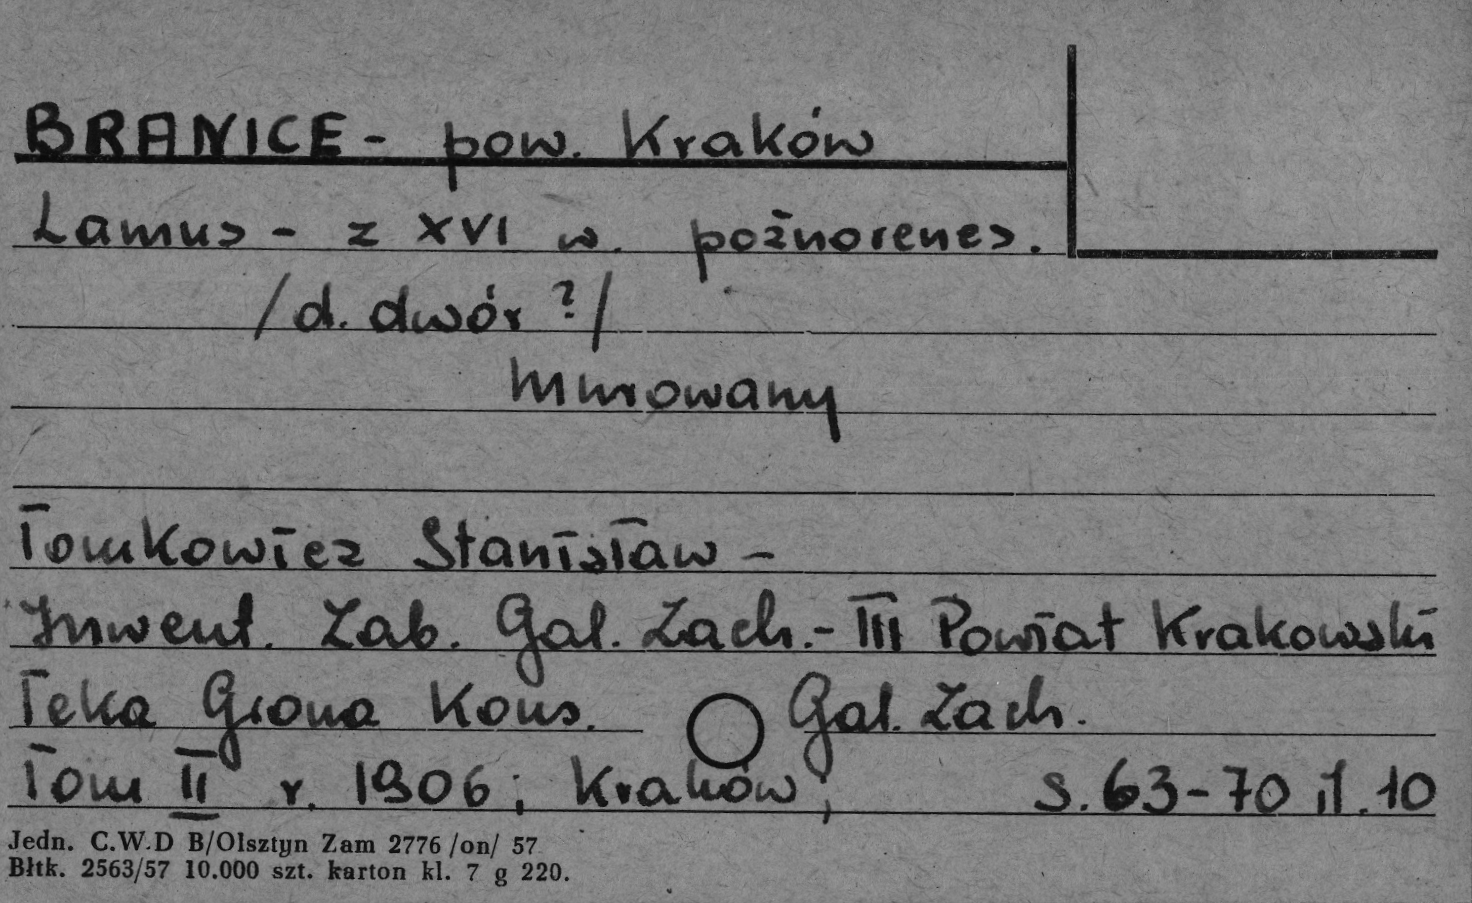 BRANICE - pow. Kraków
Lamus - z XVI w. poźnorenes.
/d. dwór ?/
murowany
Tomkowicz Stanisław -
Inwent. Zab. Gal. Zach. - III Powiat Krakowski
Teka Grona Kons. Gal. Zach.
Tom II r. 1906; Kraków; s. 63-70 il. 10
Jedn. C.W.D B/Olsztyn Zam 2776 /on/ 57
Błtk. 2563/57 10.000 szt. karton kl. 7 g 220.